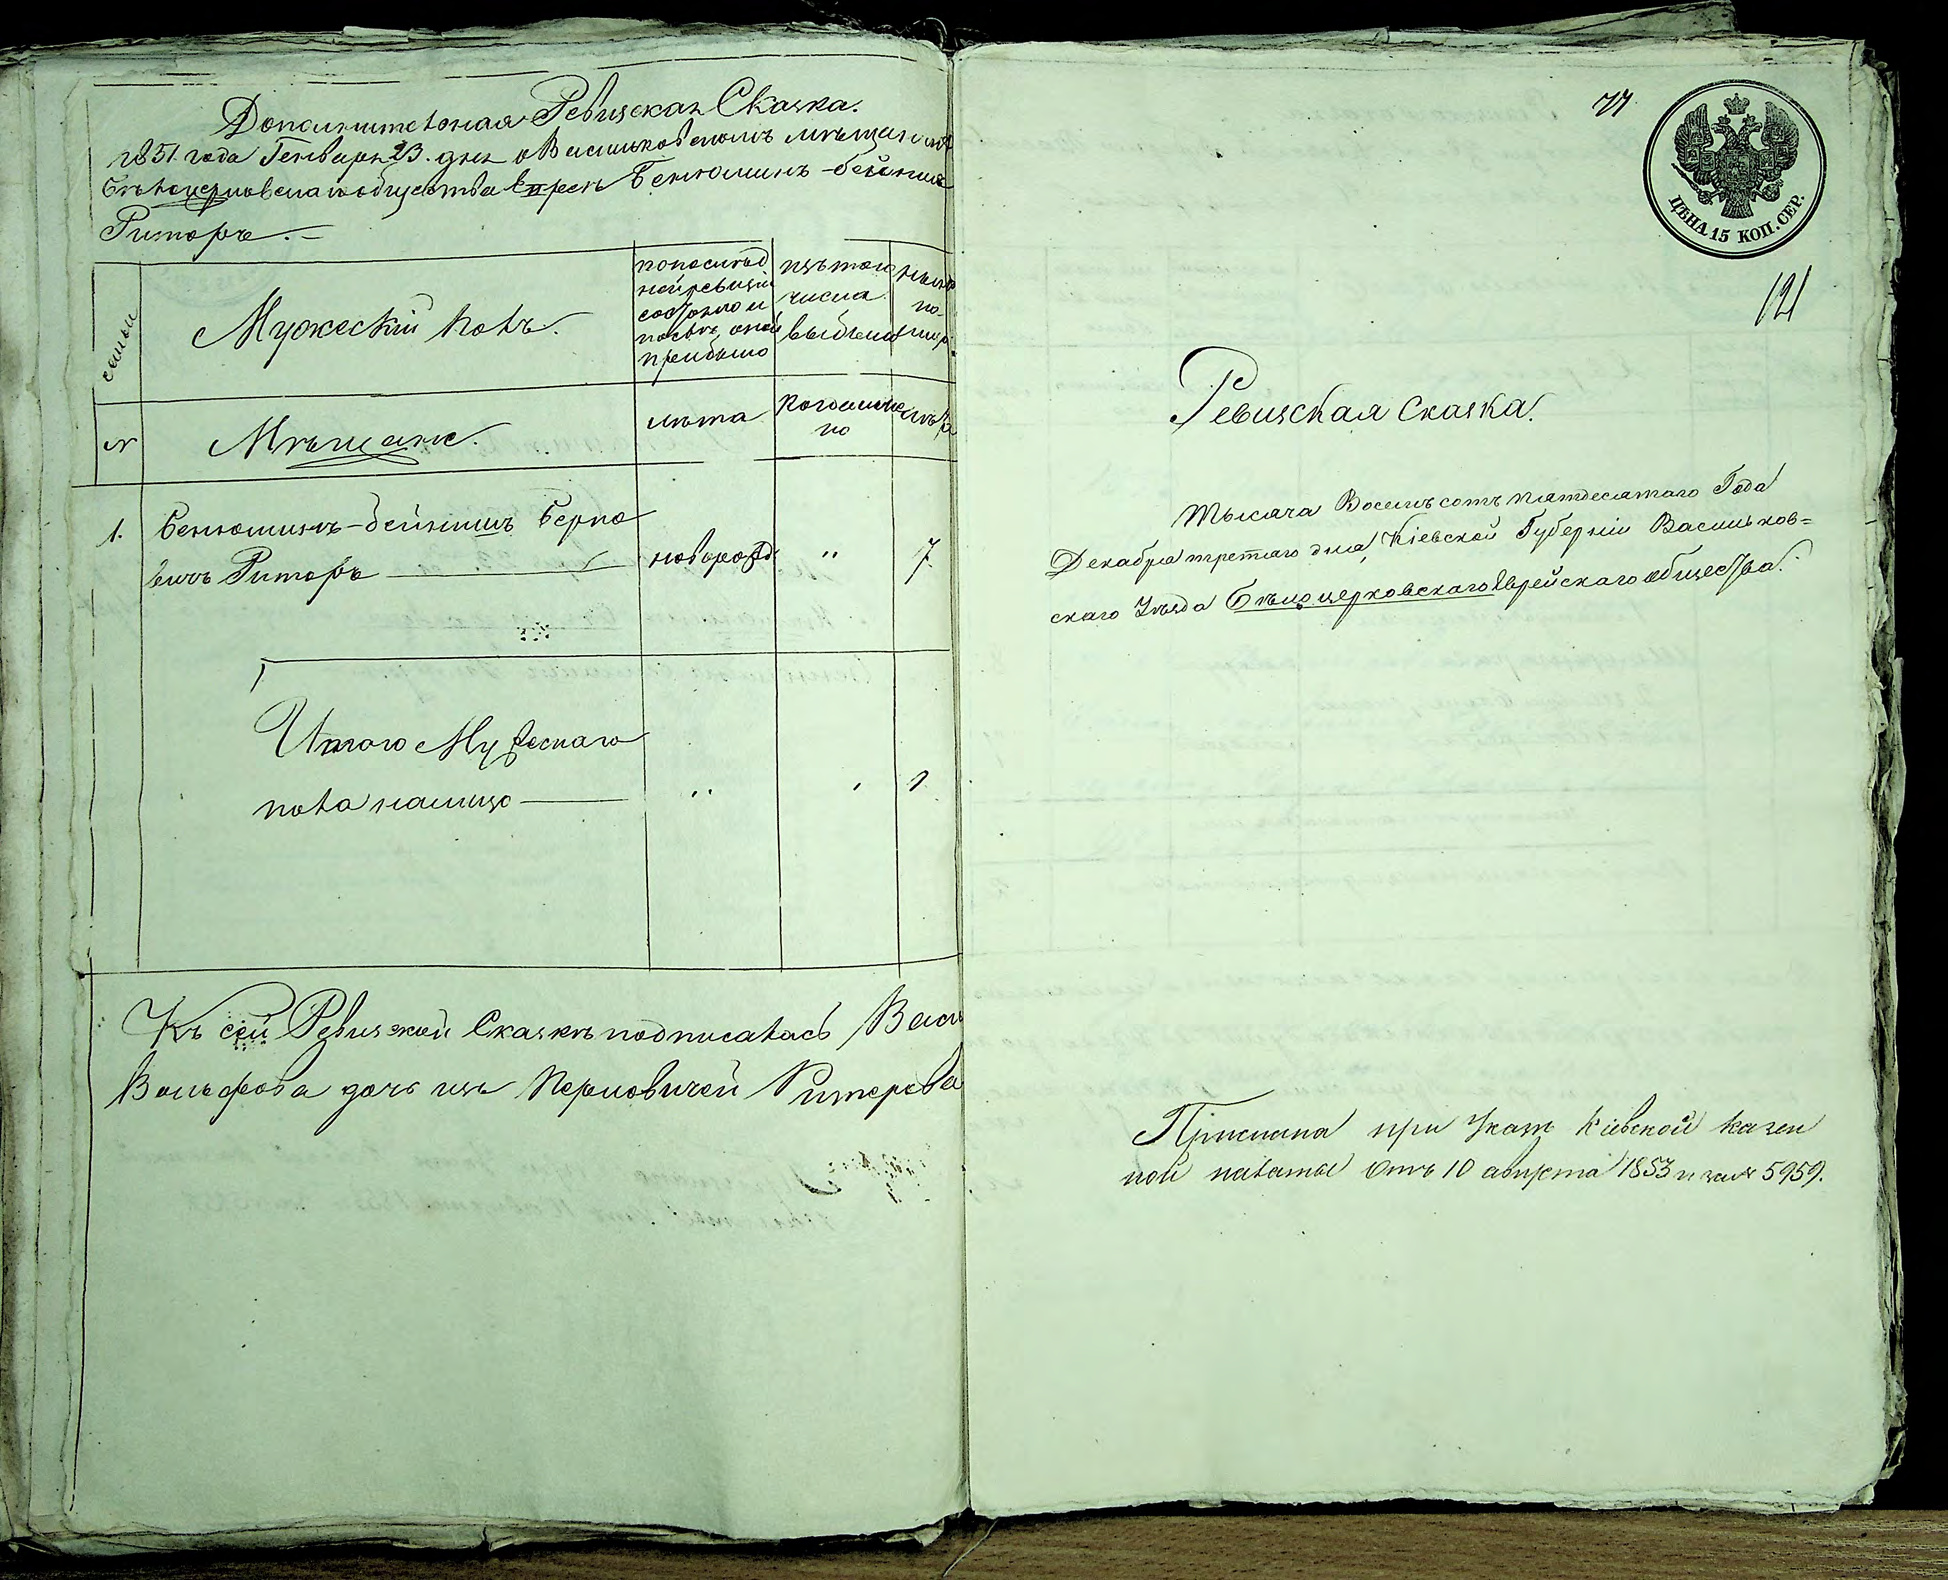 Дополнительная Ревизская Сказка.
1851 года Генваря 23. дня о Васильковскомъ мѣщанинѣ
Бѣлоцерковскаго общества Евреѣ Бенюминъ-бейнишѣ
Риторѣ.
семьи
Мужескій полъ.
попослѣд
ней ревизіи
состояло и
послѣ оной
прибыло
изъ того
числа
выбыло
нынѣ
на
лицо
№
Мѣщане.
лѣта
когда имен
но
лѣта
1.
Бенюминъ-бейнишъ Берко
вичъ Риторъ
новорожд
"
7
Итого Мужескаго
пола налицо
"
1
Къ сей Ревизской Сказкѣ подписалась
Вольфова дочь изъ Перловичей Ритерева
77
ЦѢНА 15 КОП. СЕР.
121
Ревизская сказка.
Тысяча Восемъсотъ пятдесятаго Года
Декабря третаго дня, Кіевской Губерніи Васильков=
скаго Уезда Бѣлоцерковскаго Еврейскаго общества.
Прислана при Указѣ Кіевской казен
ной палаты отъ 10 августа 1853 г за № 5959.